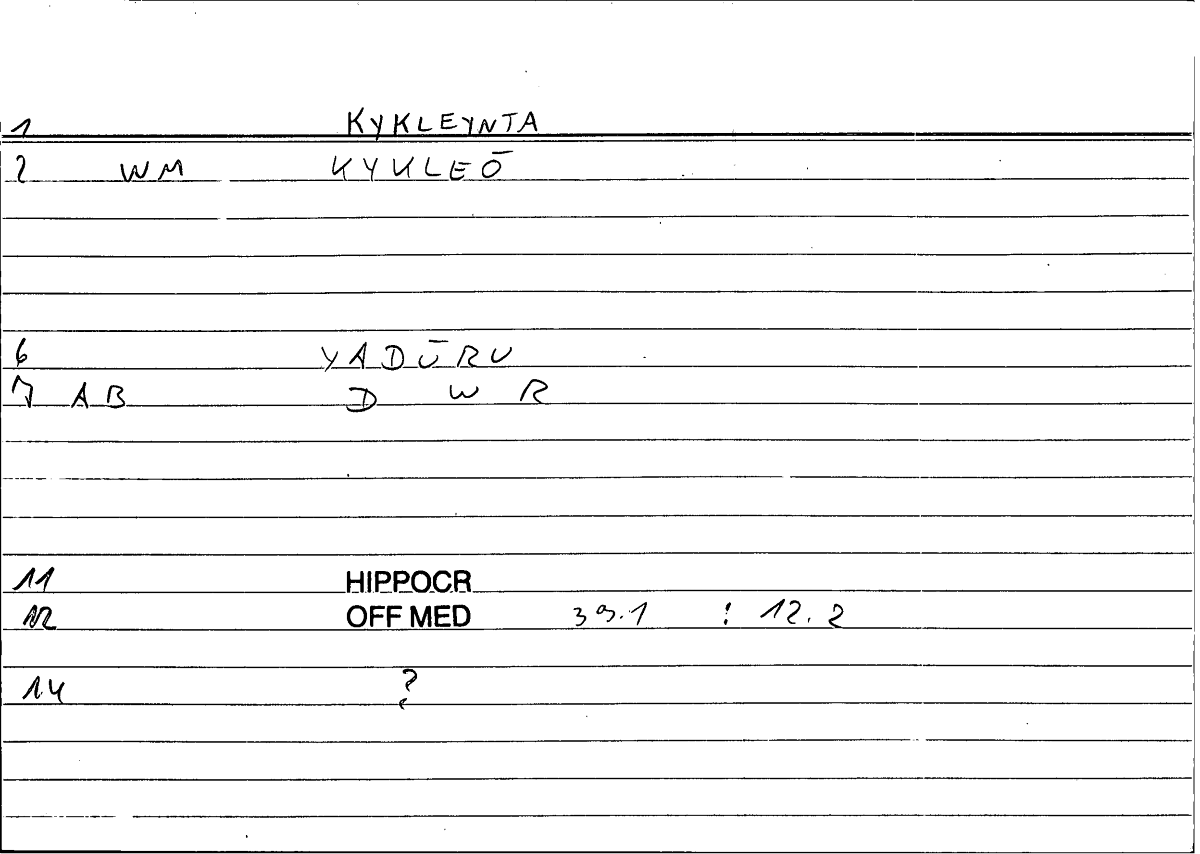 1 KYKLEYNTA
2 WM KYKLEŌ
6 YADŪRU
7 AB D W R
11 HIPPOCR
12 OFF MED 39.1 : 12.2
14 ?